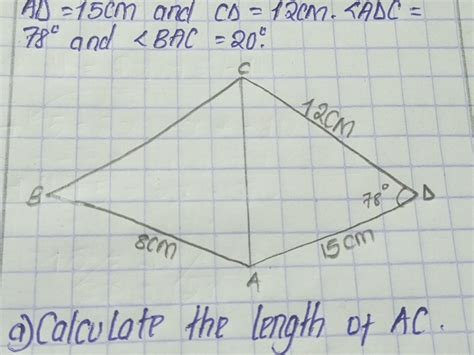 AD = 15cm and CD = 12cm. <ADC =
78° and <BAC = 20°.
C
12cm
B
78°
D
8cm
15cm
A
a) Calculate the length of AC.